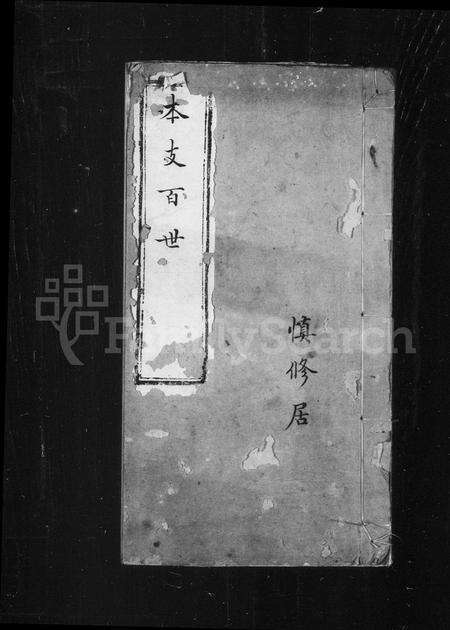 本支百世
慎修居
FamilySearch